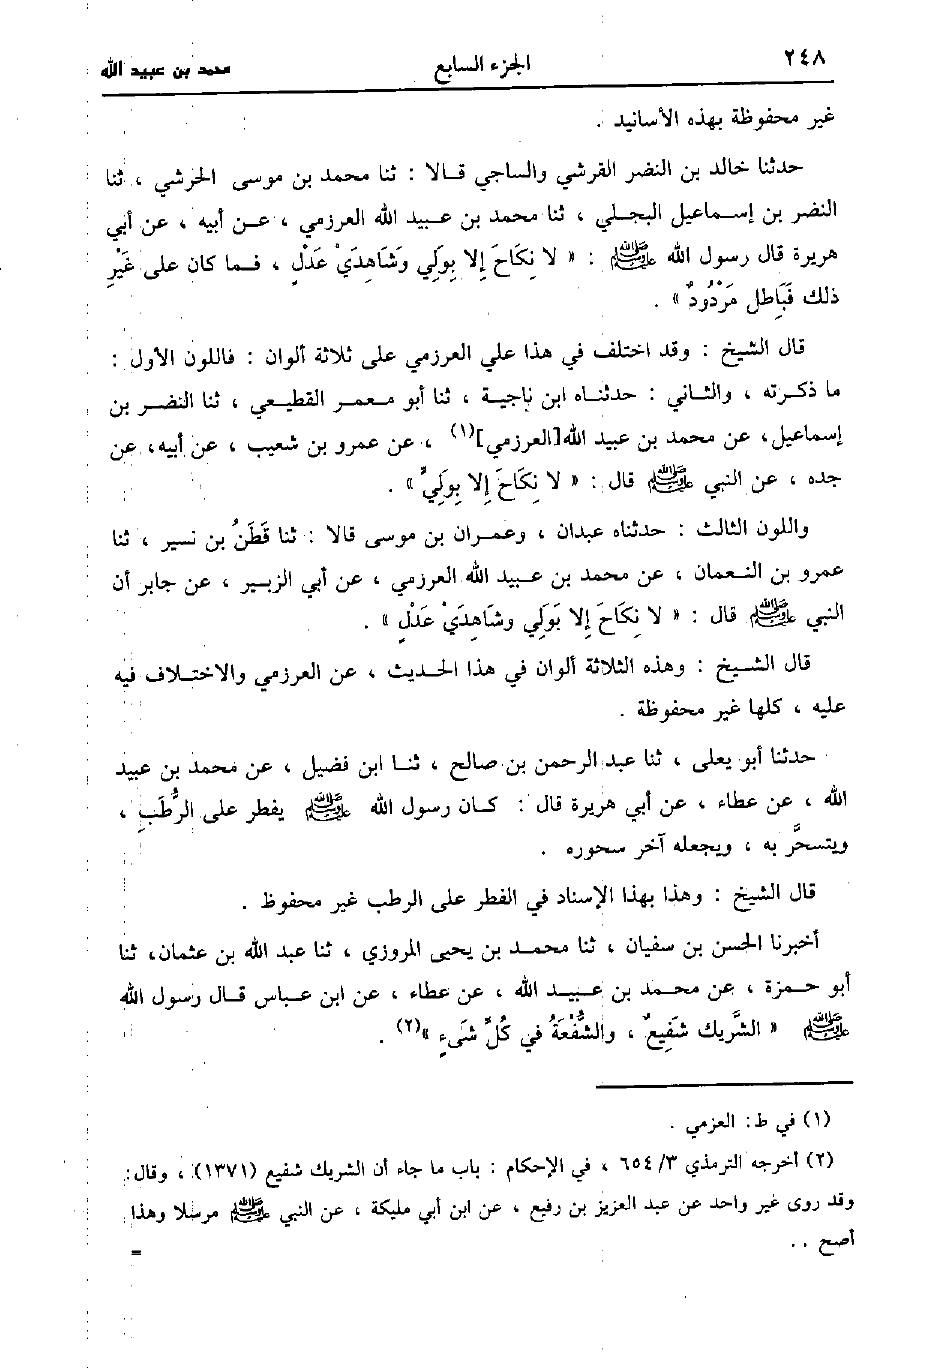 ٢٤٨ الجزء السابع محمد بن عبيد الله
غير محفوظة بهذه الأسانيد .
حدثنا خالد بن النضر القرشي والساجي قـالا : ثنا محمد بن موسى الحرشي ، ثنا
النضر بن إسـماعيل البجـلي ، ثنا محمد بن عـبيد الله العرزمي ، عـن أبيه ، عن أبي
هريرة قال رسول الله ﷺ : « لا نِكَاحَ إلا بِوَلِي وَشَاهِدَيْ عَدْلٍ ، فـما كان على غَيْرِ
ذلك فَبَاطِل مَرْدُودٌ » .
قال الشيخ : وقد اختلف في هذا علي العرزمي على ثلاثة ألوان : فاللون الأول :
ما ذكـرته ، والثـاني : حدثنـاه ابن ناجيـة ، ثنا أبو مـعمر القطيـعي ، ثنا النضـر بن
إسماعيل، عن محمد بن عبيد الله[العرزمي](١) ، عن عمرو بن شعيب ، عن أبيه، عن
جده ، عن النبي ﷺ قال : « لا نِكَاحَ إِلا بِوَلِيٍّ » .
واللون الثالث : حدثناه عبدان ، وعمـران بن موسى قالا : ثنا قَطَنُ بن نسير ، ثنا
عمرو بن النـعمان ، عن محمد بن عـبيد الله العرزمي ، عن أبي الزبـير ، عن جابر أن
النبي ﷺ قال : « لا نِكَاحَ إِلا بَوَلي وشَاهِدَيْ عَدْلٍ » .
قال الشـيخ : وهذه الثلاثة ألوان في هذا الحـديث ، عن العرزمي والاختـلاف فيه
عليه ، كلها غير محفوظة .
حدثنا أبو يعلى ، ثنا عبد الرحمن بن صالح ، ثنـا ابن فضيل ، عن محمد بن عبيد
الله ، عن عطاء ، عن أبي هريرة قال : كـان رسول الله ﷺ يفطر على الرُّطَبِ ،
ويتسحَّر به ، ويجعله آخر سحوره .
قال الشيخ : وهذا بهذا الإسناد في الفطر على الرطب غير محفوظ .
أخبرنا الحسن بن سفيان ، ثنا محمـد بن يحيى المروزي ، ثنا عبد الله بن عثمان، ثنا
أبو حـمزة ، عن محـمد بن عـبيـد الله ، عن عطاء ، عن ابن عـباس قـال رسول الله
ﷺ « الشَّرِيك شَفِيعٌ ، والشُّفْعَةُ في كُلِّ شَيءٍ »(٢) .
(١) في ط: العزمي .
(٢) أخرجه الترمذي ٣/ ٦٥٤ ، في الإحكام : باب ما جاء أن الشريك شفيع (١٣٧١) ، وقال:
وقد روى غير واحد عن عبد العزيز بن رفيع ، عن ابن أبي مليكة ، عن النبي ﷺ مرسلا وهذا
أصح . . =